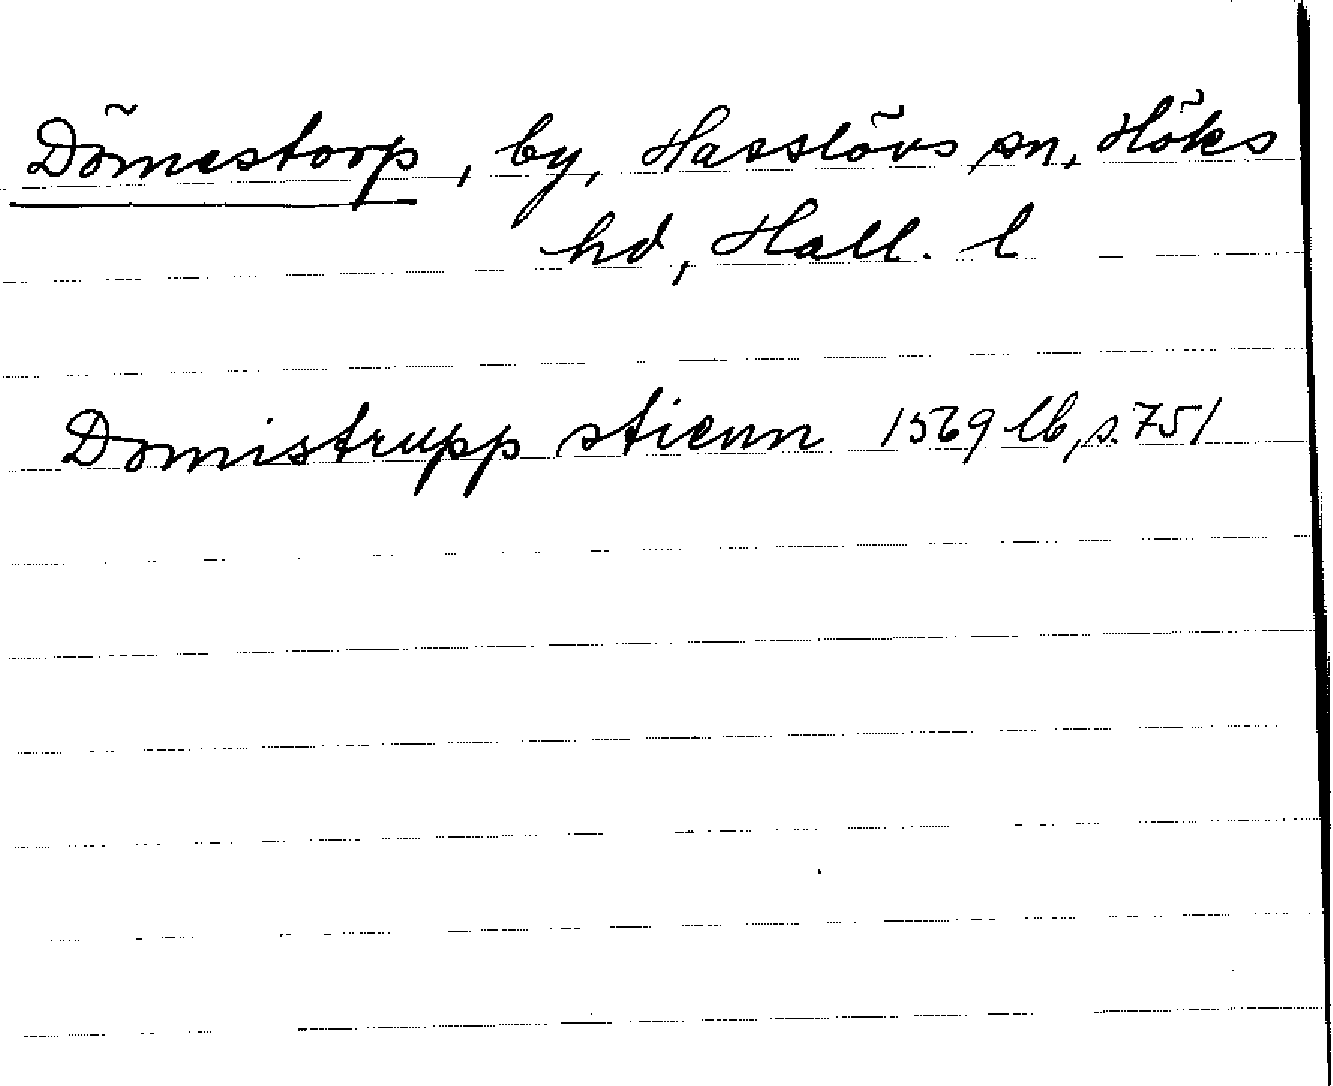 Dömestorp, by, Hasslövs sn, Höks
hd, Hall. l
Domistrupp stienn 1569 lb, s. 751